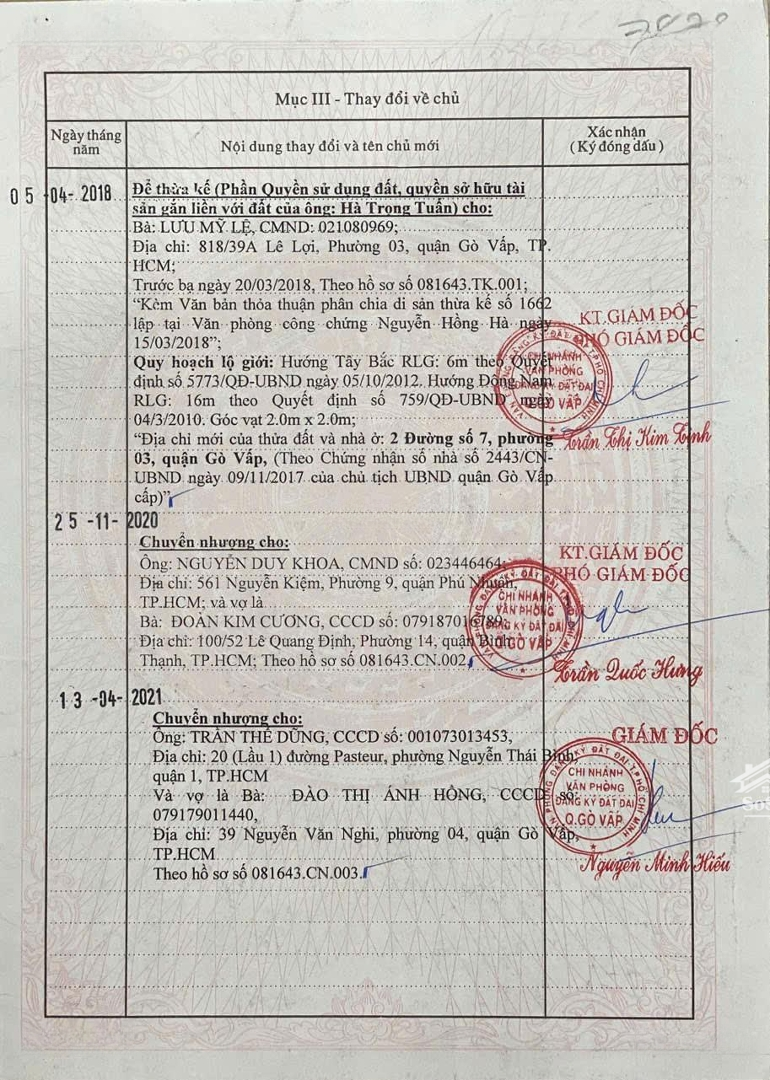 7820
Mục III - Thay đổi về chủ
Ngày tháng năm
Nội dung thay đổi và tên chủ mới
Xác nhận
( Ký đóng dấu )
05-04-2018
Để thừa kế (Phần Quyền sử dụng đất, quyền sở hữu tài
sản gắn liền với đất của ông: Hà Trọng Tuấn) cho:
Bà: LƯU MỸ LỆ, CMND: 021080969;
Địa chỉ: 818/39A Lê Lợi, Phường 03, quận Gò Vấp, TP.
HCM;
Trước bạ ngày 20/03/2018, Theo hồ sơ số 081643.TK.001;
“Kèm Văn bản thỏa thuận phân chia di sản thừa kế số 1662
lập tại Văn phòng công chứng Nguyễn Hồng Hà ngày
15/03/2018”;
Quy hoạch lộ giới: Hướng Tây Bắc RLG: 6m theo Quyết
định số 5773/QĐ-UBND ngày 05/10/2012, Hướng Đông Nam
RLG: 16m theo Quyết định số 759/QĐ-UBND ngày
04/3/2010. Góc vạt 2.0m x 2.0m;
“Địa chỉ mới của thửa đất và nhà ở: 2 Đường số 7, phường
03, quận Gò Vấp, (Theo Chứng nhận số nhà số 2443/CN-
UBND ngày 09/11/2017 của chủ tịch UBND quận Gò Vấp
cấp)”
KT.GIÁM ĐỐC
PHÓ GIÁM ĐỐC
VĂN PHÒNG ĐĂNG KÝ ĐẤT ĐAI T.P HỒ CHÍ MINH
CHI NHÁNH
VĂN PHÒNG
ĐĂNG KÝ ĐẤT ĐAI
Q.GÒ VẤP
Trần Thị Kim Linh
25-11-2020
Chuyển nhượng cho:
Ông: NGUYỄN DUY KHOA, CMND số: 023446464;
Địa chỉ: 561 Nguyễn Kiệm, Phường 9, quận Phú Nhuận,
TP.HCM; và vợ là
Bà: ĐOÀN KIM CƯƠNG, CCCD số: 079187016789;
Địa chỉ: 100/52 Lê Quang Định, Phường 14, quận Bình
Thạnh, TP.HCM; Theo hồ sơ số 081643.CN.002
KT.GIÁM ĐỐC
PHÓ GIÁM ĐỐC
VĂN PHÒNG ĐĂNG KÝ ĐẤT ĐAI T.P HỒ CHÍ MINH
CHI NHÁNH
VĂN PHÒNG
ĐĂNG KÝ ĐẤT ĐAI
Q.GÒ VẤP
Trần Quốc Hưng
13-04-2021
Chuyển nhượng cho:
Ông: TRẦN THẾ DŨNG, CCCD số: 001073013453,
Địa chỉ: 20 (Lầu 1) đường Pasteur, phường Nguyễn Thái Bình,
quận 1, TP.HCM
Và vợ là Bà: ĐÀO THỊ ÁNH HỒNG, CCCD số:
079179011440,
Địa chỉ: 39 Nguyễn Văn Nghi, phường 04, quận Gò Vấp,
TP.HCM
Theo hồ sơ số 081643.CN.003.
GIÁM ĐỐC
VĂN PHÒNG ĐĂNG KÝ ĐẤT ĐAI T.P HỒ CHÍ MINH
CHI NHÁNH
VĂN PHÒNG
ĐĂNG KÝ ĐẤT ĐAI
Q.GÒ VẤP
Nguyễn Minh Hiếu